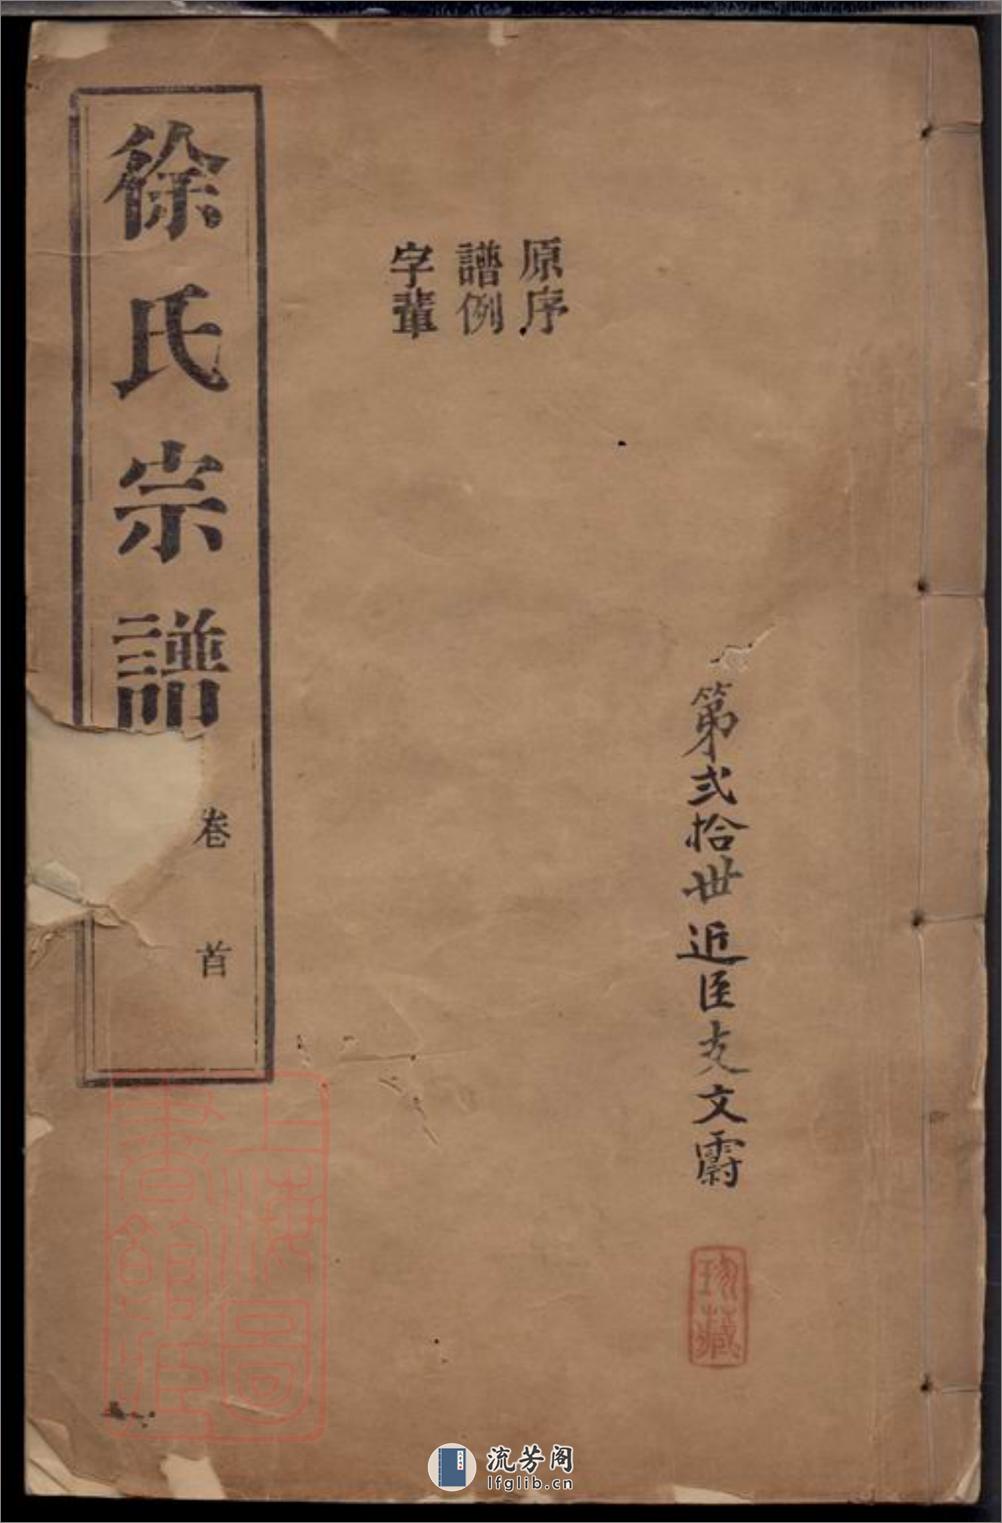 第弍拾世近臣克文霨
珍藏
原序
譜例
字輩
徐氏宗譜
卷首
上海圖書館藏
流芳阁
lfglib.cn